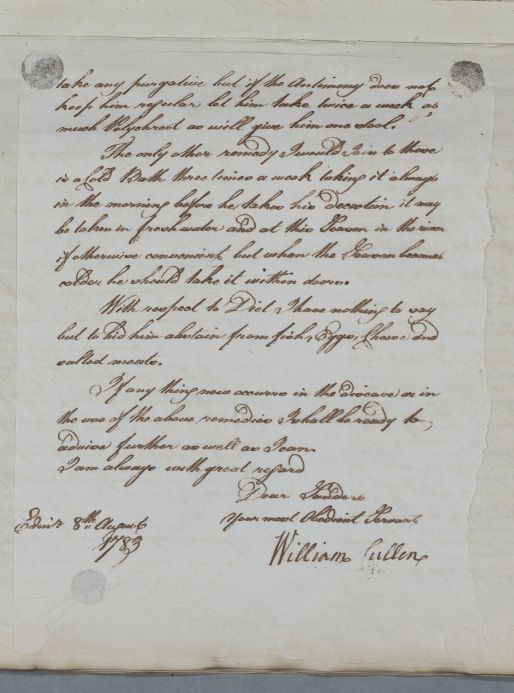 take any purgative but if the Antimony does not
keep him regular let him take twice a week as
much Polychrest as will give him one stool.
The only other remedy I would Join to these
is a Cold Bath three times a week taking it always
in the morning before he takes his decoction it may
be taken in fresh water and at this Season in the river
if otherwise convenient but when the Season becomes
colder he should take it within doors.
With respect to Diet I have nothing to say
but to bid him abstain from fish, Eggs, Cheese and
salted meats.
If any thing new occurrs in the disease or in
the use of the above remedies I shall be ready to
advise further as well as I can
I am always with great regard
Dear
Your most Obedient Servant
Edinr 8th August
1783
William Cullen